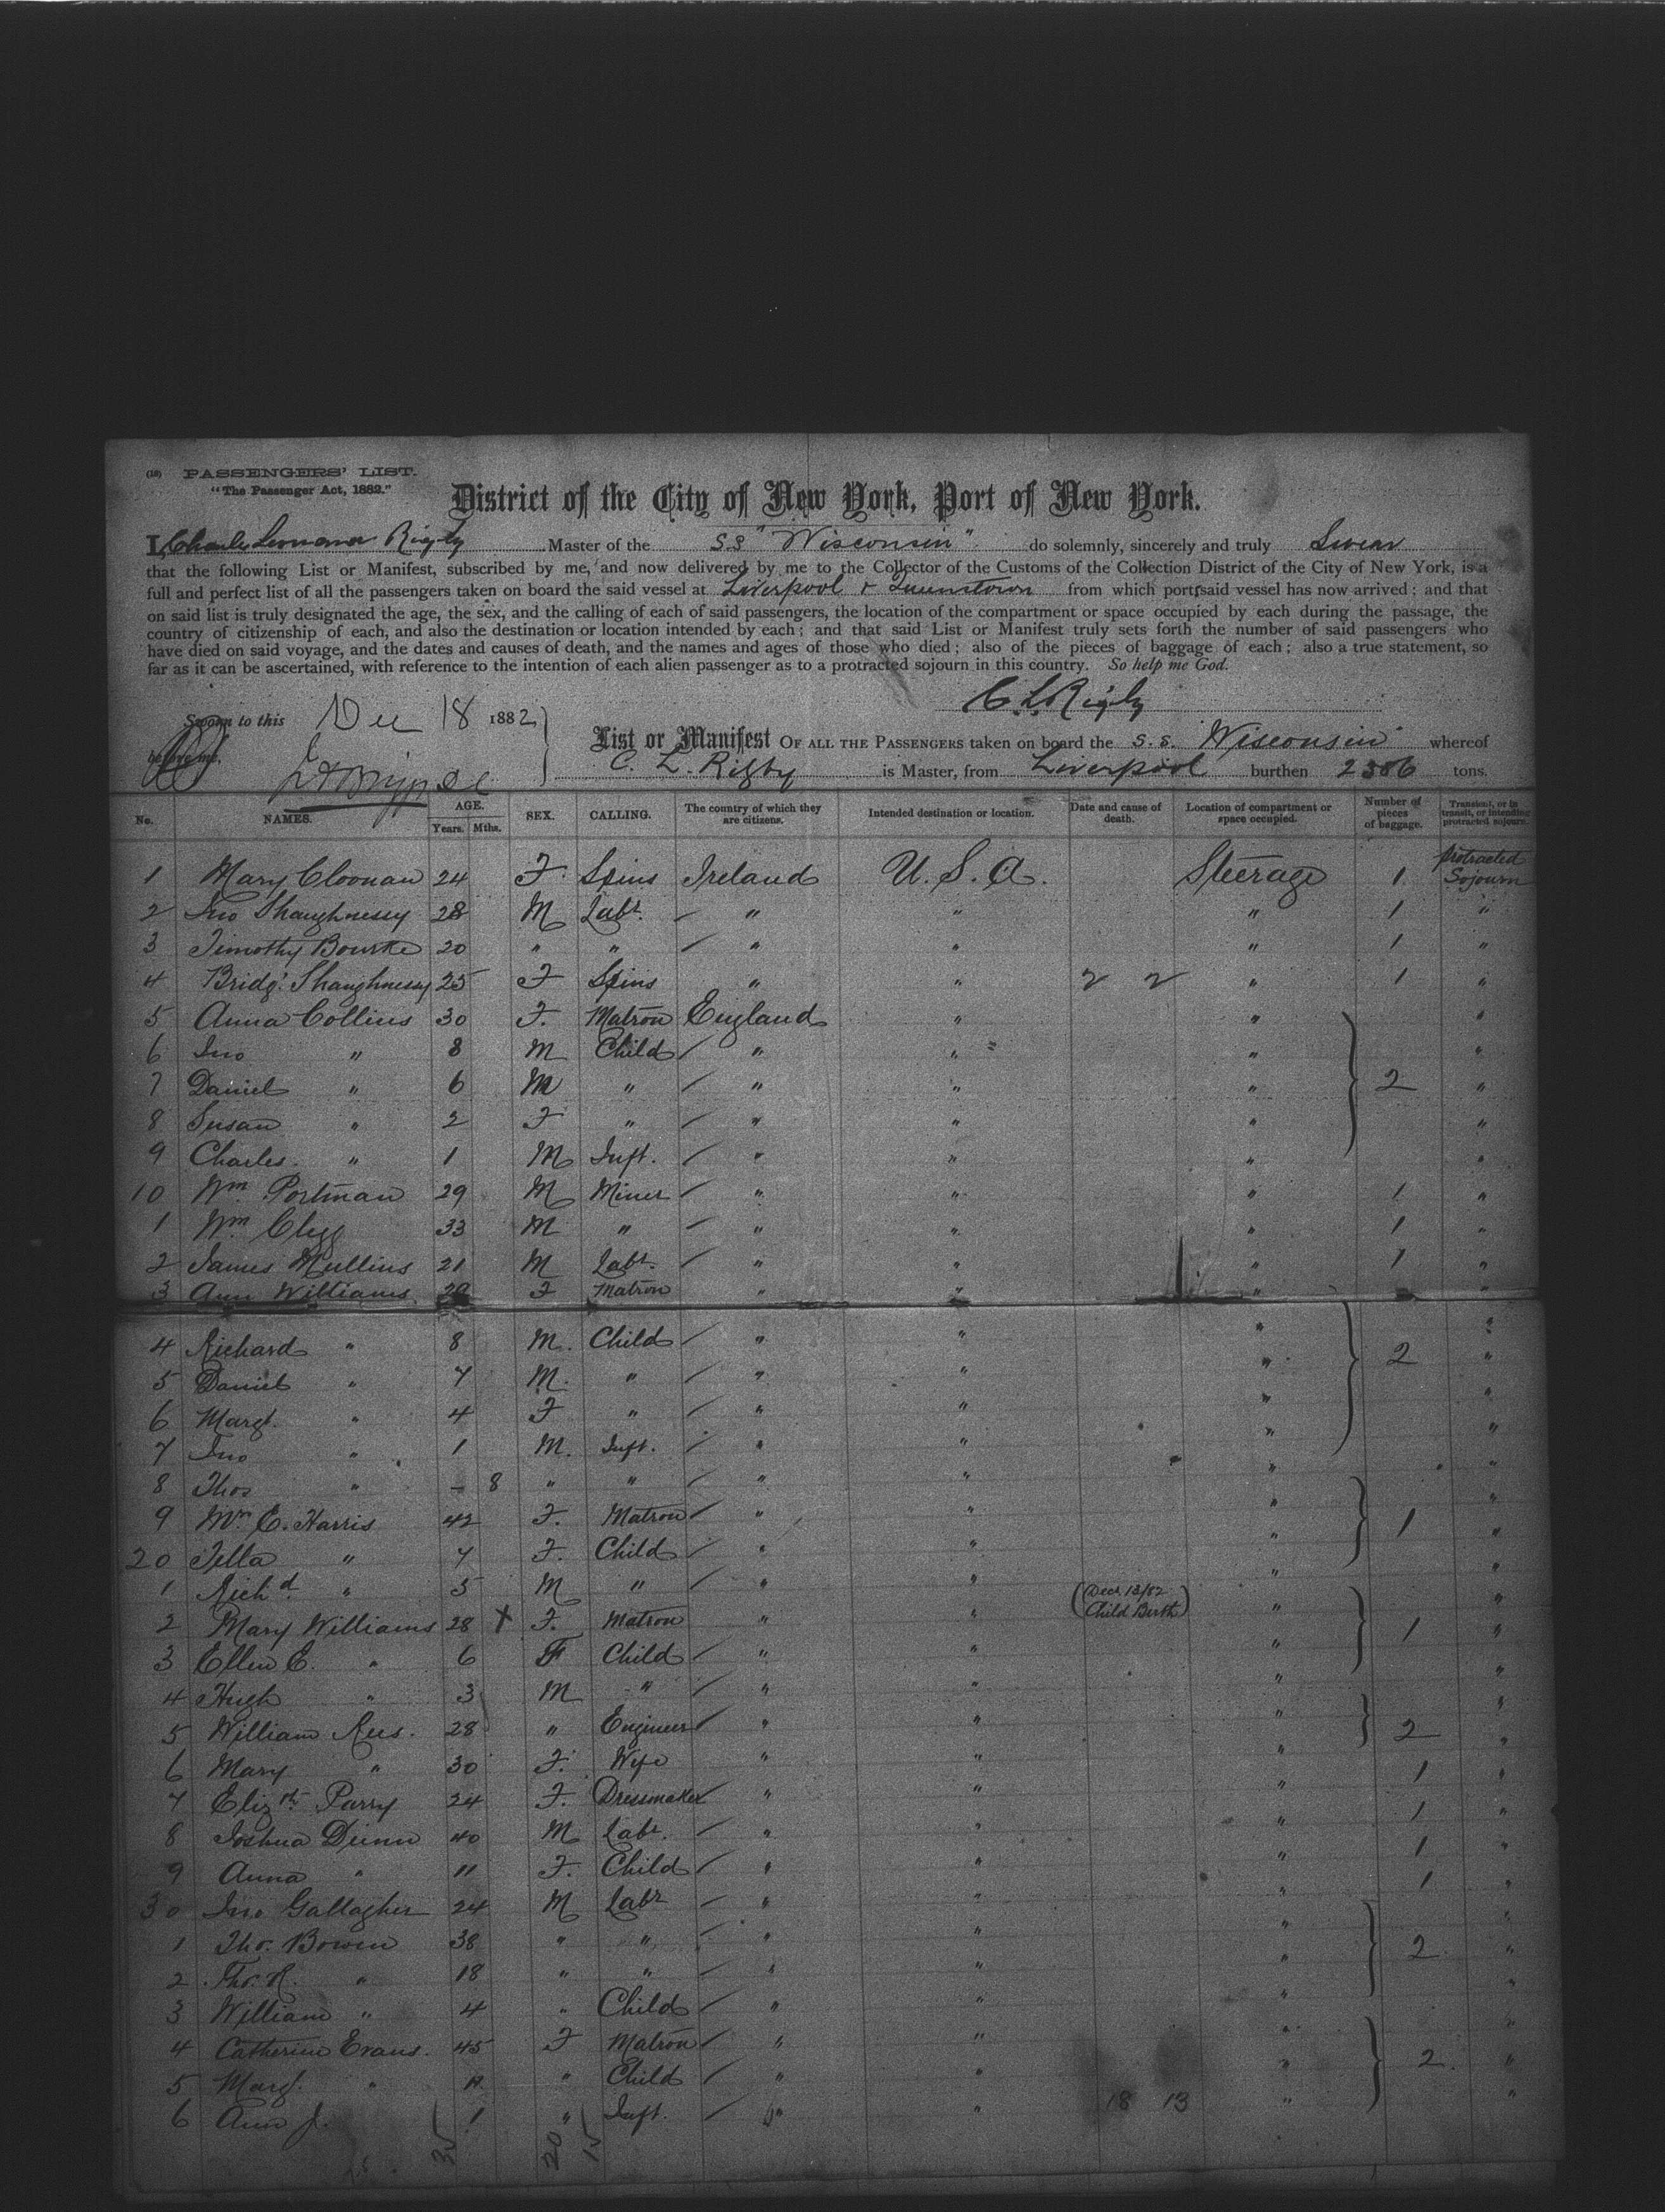 (18) PASSENGERS' LIST.
"The Passenger Act, 1882."
District of the City of New York, Port of New York.
I, Charles Leonard Rigby Master of the SS "Wisconsin" do solemnly, sincerely and truly Swear
that the following List or Manifest, subscribed by me, and now delivered by me to the Collector of the Customs of the Collection District of the City of New York, is a
full and perfect list of all the passengers taken on board the said vessel at Liverpool & Queenstown from which port said vessel has now arrived; and that
on said list is truly designated the age, the sex, and the calling of each of said passengers, the location of the compartment or space occupied by each during the passage, the
country of citizenship of each, and also the destination or location intended by each; and that said List or Manifest truly sets forth the number of said passengers who
have died on said voyage, and the dates and causes of death, and the names and ages of those who died; also of the pieces of baggage of each; also a true statement, so
far as it can be ascertained, with reference to the intention of each alien passenger as to a protracted sojourn in this country. So help me God.
C. L. Rigby
Sworn to this Dec 18 1882
before me,
List or Manifest OF ALL THE PASSENGERS taken on board the s.s. Wisconsin whereof
C. L. Rigby is Master, from Liverpool burthen 2386 tons.
No. NAMES. AGE. Years. Mths. SEX. CALLING. The country of which they are citizens. Intended destination or location. Date and cause of death. Location of compartment or space occupied. Number of pieces of baggage. Transient, or in transit, or intending protracted sojourn.
1 Mary Cloonan 24 F. Spins Ireland U.S.A. Steerage 1 Protracted Sojourn
2 Jno Shaughnessy 28 M Labr. " " " 1 "
3 Timothy Bourke 20 " " " " " 1 "
4 Bridgt. Shaughnessy 25 F Spins " " 2 2 " 1 "
5 Anna Collins 30 F. Matron England " " "
6 Jno " 8 M Child " " " "
7 Daniel " 6 M " " " " 2 "
8 Susan " 2 F " " " " "
9 Charles. " 1 M Inft. " " " "
10 Wm. Portman 29 M Miner " " " 1 "
1 Wm. Clegg 33 M " " " " 1 "
2 James Mullins 21 M Labr. " " " 1 "
3 Ann Williams 29 F Matron " " " "
4 Richard " 8 M. Child " " " "
5 Daniel " 7 M. " " " " 2 "
6 Margt. " 4 F " " " " "
7 Jno " 1 M. Inft. " " " "
8 Thos " - 8 " " " " " "
9 Mrs. E. Harris 42 F. Matron " " " 1 "
20 Tella " 7 F. Child " " " "
1 Richd. " 5 M " " " " "
2 Mary Williams 28 X F. Matron " " (Decr 13/82 Child Birth) " 1 "
3 Ellen E. " 6 F Child " " " "
4 Hugh " 3 M " " " " "
5 William Rees. 28 " Engineer " " " 2 "
6 Mary " 30 F. Wife " " " "
7 Elizth. Parry 24 F. Dressmaker " " " 1 "
8 Joshua Dunn 40 M Labr. " " " 1 "
9 Anna " 11 F. Child " " " 1 "
30 Jno. Gallagher 24 M Labr " " " 1 "
1 Tho. Bowen 38 " " " " " "
2 Tho. R. " 18 " " " " " 2 "
3 William " 4 " Child " " " "
4 Catherine Evans. 45 F Matron " " " "
5 Margt. " 11 " Child " " " 2. "
6 Ann J. 1 " Inft. " " 18 13 " "
35 20 15